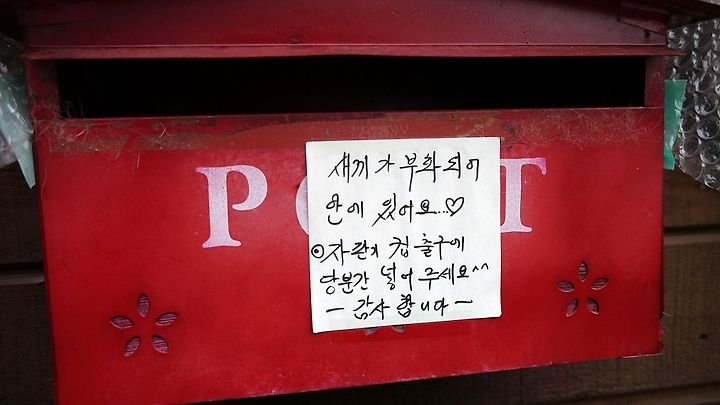 POST
새끼가 부화되어
안에 있어요...♡
⊙자판기 컵 출구에
당분간 넣어 주세요^^
- 감사합니다 -